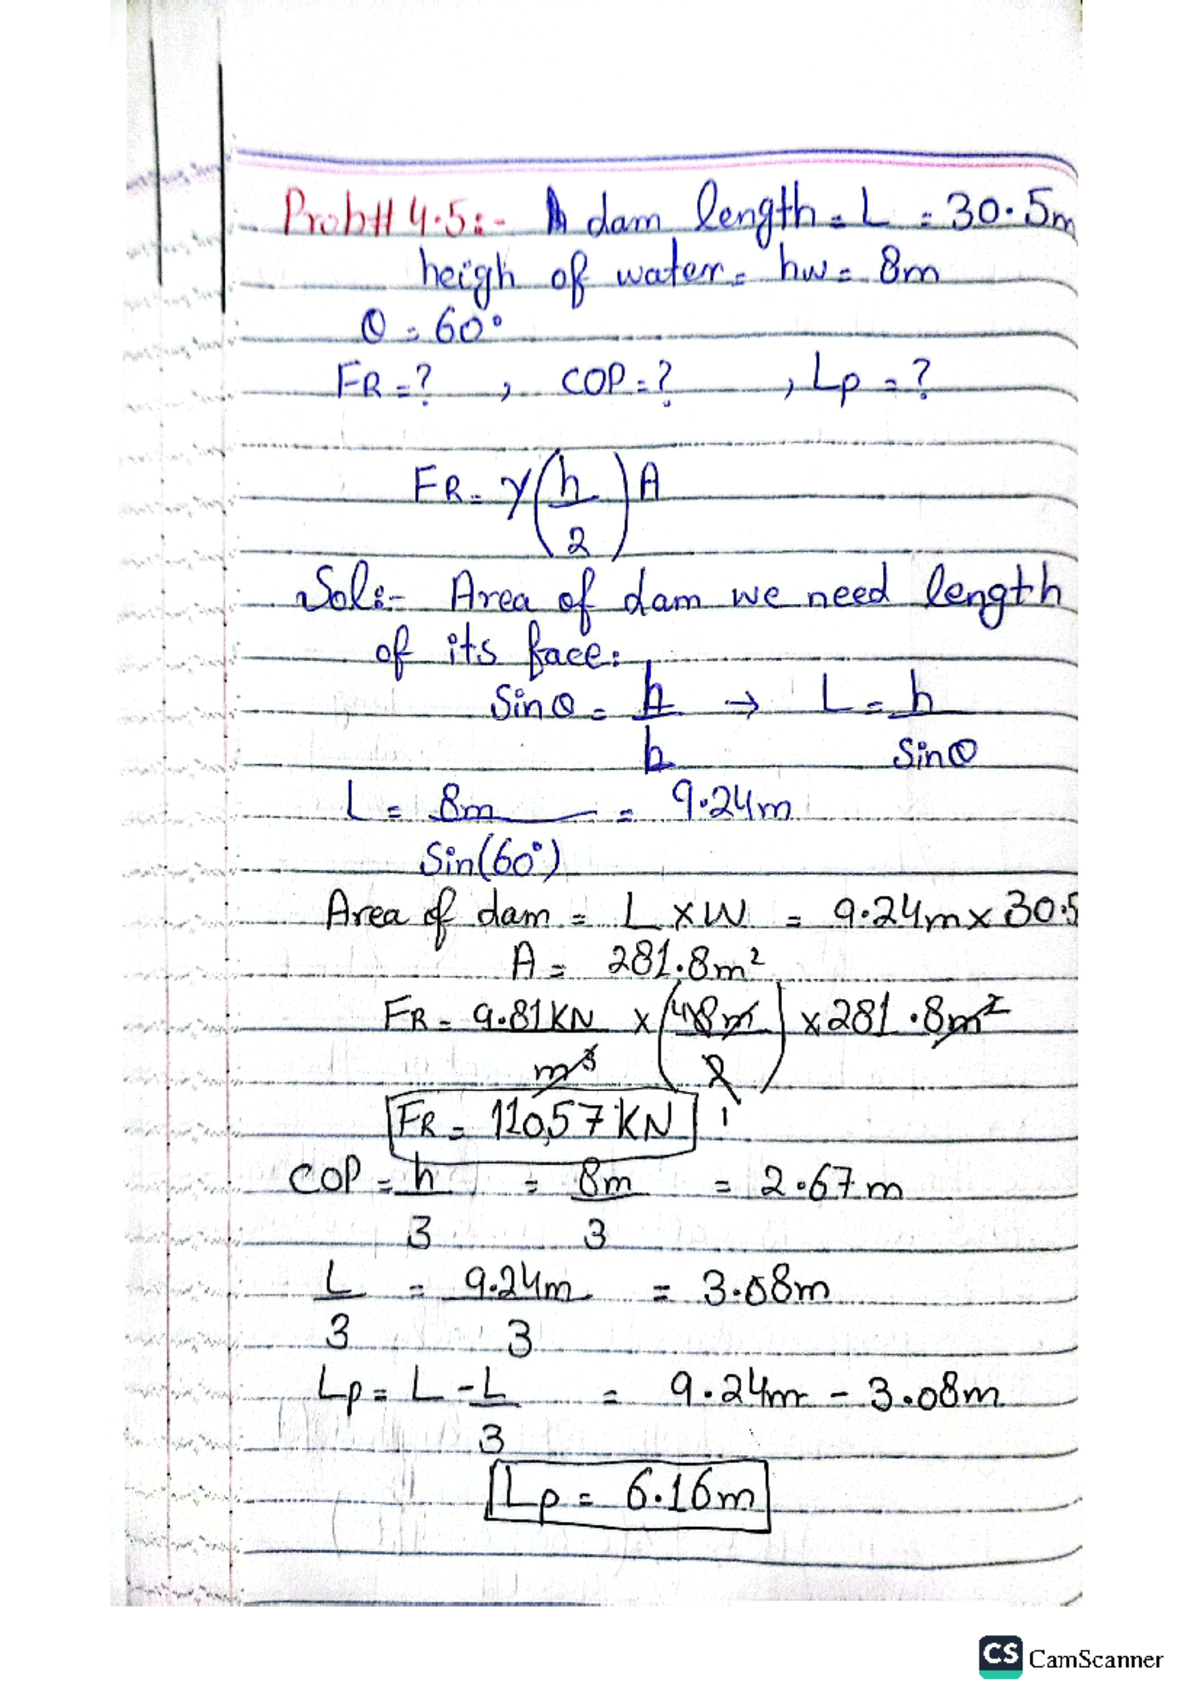 Prob# 4.5:- A dam length = L = 30.5m
heigh of water = hw = 8m
θ = 60°
FR = ? , COP = ? , Lp = ?
FR = γ(h/2)A
Sol:- Area of dam we need length
of its face:
Sinθ = h/L → L = h/Sinθ
L = 8m/Sin(60°) = 9.24m
Area of dam = L x W = 9.24m x 30.5
A = 281.8m²
FR = 9.81KN/m³ x (8m/2) x 281.8m²
FR = 11057 KN
COP = h/3 = 8m/3 = 2.67m
L/3 = 9.24m/3 = 3.08m
Lp = L - L/3 = 9.24m - 3.08m
Lp = 6.16m
CS CamScanner